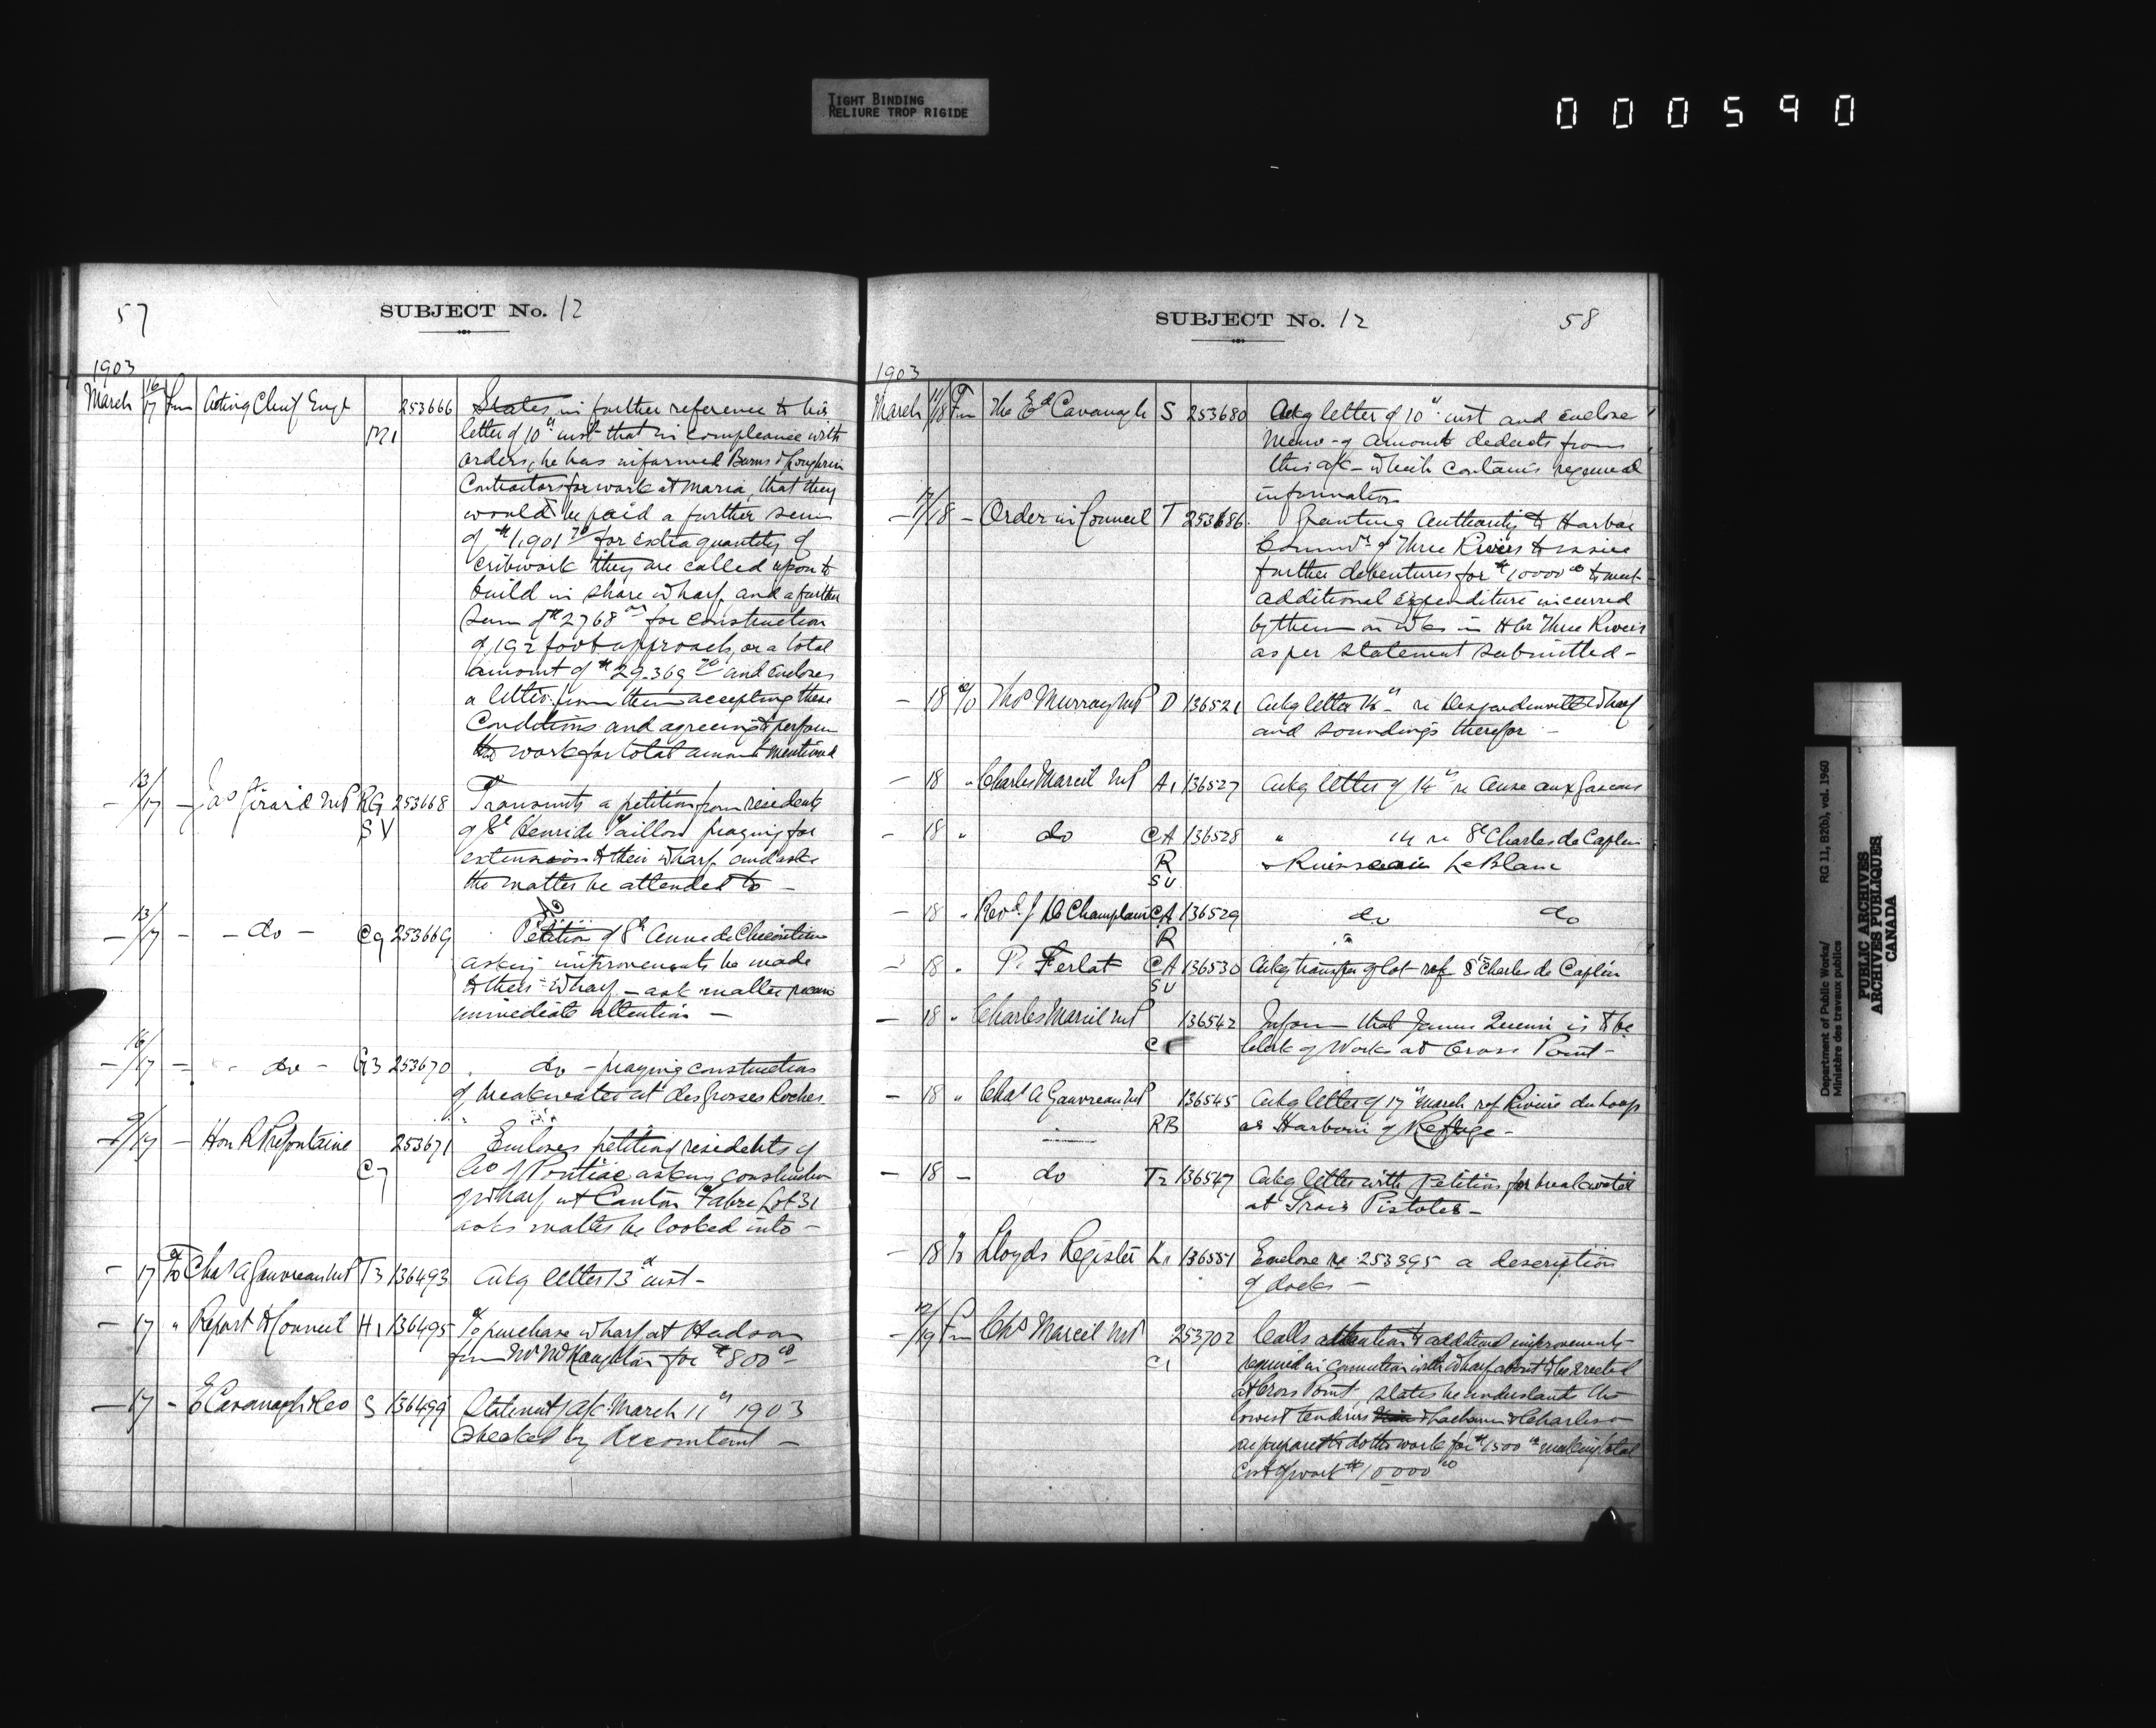 TIGHT BINDING
RELIURE TROP RIGIDE
000590
57
SUBJECT No. 12
1903
March 16/17 Fm Acting Chief Engr M1 253666 States in further reference to his
letter of 10th inst that in compliance with
orders, he has informed Burns & Loughrin
Contractors for work at Maria, that they
would be paid a further sum
of $1,901 70 for extra quantity of
cribwork they are called upon to
build in share wharf and a further
sum of $2768 00 for construction
of 192 foot approach, or a total
amount of $29.369 70 and encloses
a letter from them accepting these
Conditions and agreeing to perform
the work for total amount mentioned
— 13/17 — Jas Girard MP RG SV 253668 Transmits a petition from residents
of St Henri de Taillon praying for
extension to their wharf and asks
the matter be attended to —
— 13/17 — — do — C9 253669 do Petition of St Anne de Chicoutimi
asking improvements be made
to their wharf — ask matter receive
immediate attention —
— 16/17 — - do - G3 253670 . do — praying construction
of breakwater at des Grosses Roches.
— 9/17 — Hon R Prefontaine C7 253671 Encloses petition of residents of
Co of Pontiac asking construction
of wharf at Canton Fabre Lot 31
asks matter be looked into —
— 17 To Chas A Gauvreau MP T3 136493 Ackg letter 13th inst —
— 17 " Report to Council H1 136495 To purchase wharf at Hudson
from Mr McNaughton for $800 00 —
— 17 - E Cavanagh & Co S 136499 Statement a/c March 11th 1903
checked by Accountant —
SUBJECT No. 12
58
1903
March 11/18 Fm The Ed Cavanagh S 253680 Ackg letter of 10th inst and enclose
Memo of amount deducts from
this a/c — which contains required
information
— 17/18 — Order in Council T 253686. Granting Authority to Harbor
Commrs of Three Rivers to issue
further debentures for $10000 00 to meet
additional expenditure incurred
by them on wks in Hbr Three Rivers
as per statement submitted —
— 18 To Thos Murray MP D 136521 Ackg letter 16th re Desjardinville wharf
and soundings therefor —
— 18 " Charles Marcil MP A1 136527 Ackg letter of 14th re Anse aux Gascons
— 18 " do CA R SV 136528 " 14 re St Charles de Caplin
& Ruisseau LeBlanc
— 18 " Revd. J De Champlain CA R 136529 do do
"
— 18 " P. Ferlat CA SV 136530 Ackg transfer of lot ref St Charles de Caplin
— 18 " Charles Marcil MP C1 136542 Inform that James is to be
Clerk of Works at Cross Point —
— 18 " Chas A Gauvreau MP RB 136545 Ackg letter of 17th March ref Riviere du Loup
as Harbour of Refuge —
— 18 — do T2 136547 Ackg letter with Petition for breakwater
at Trois Pistoles —
— 18 To Lloyds Register K1 136551 Enclose re 253395 a description
of docks —
— 17/19 Fm Chs Marcil MP C1 253702 Calls attention to additional improvements
required in connection with wharf about to be erected
at Cross Point, states he understands the
lowest tenderers & Charleson
are prepared to do the work for $1500 00 making total
Cost of work $10000 00
Department of Public Works/ RG 11, B2(b), vol. 1960
Ministère des travaux publics
PUBLIC ARCHIVES
ARCHIVES PUBLIQUES
CANADA